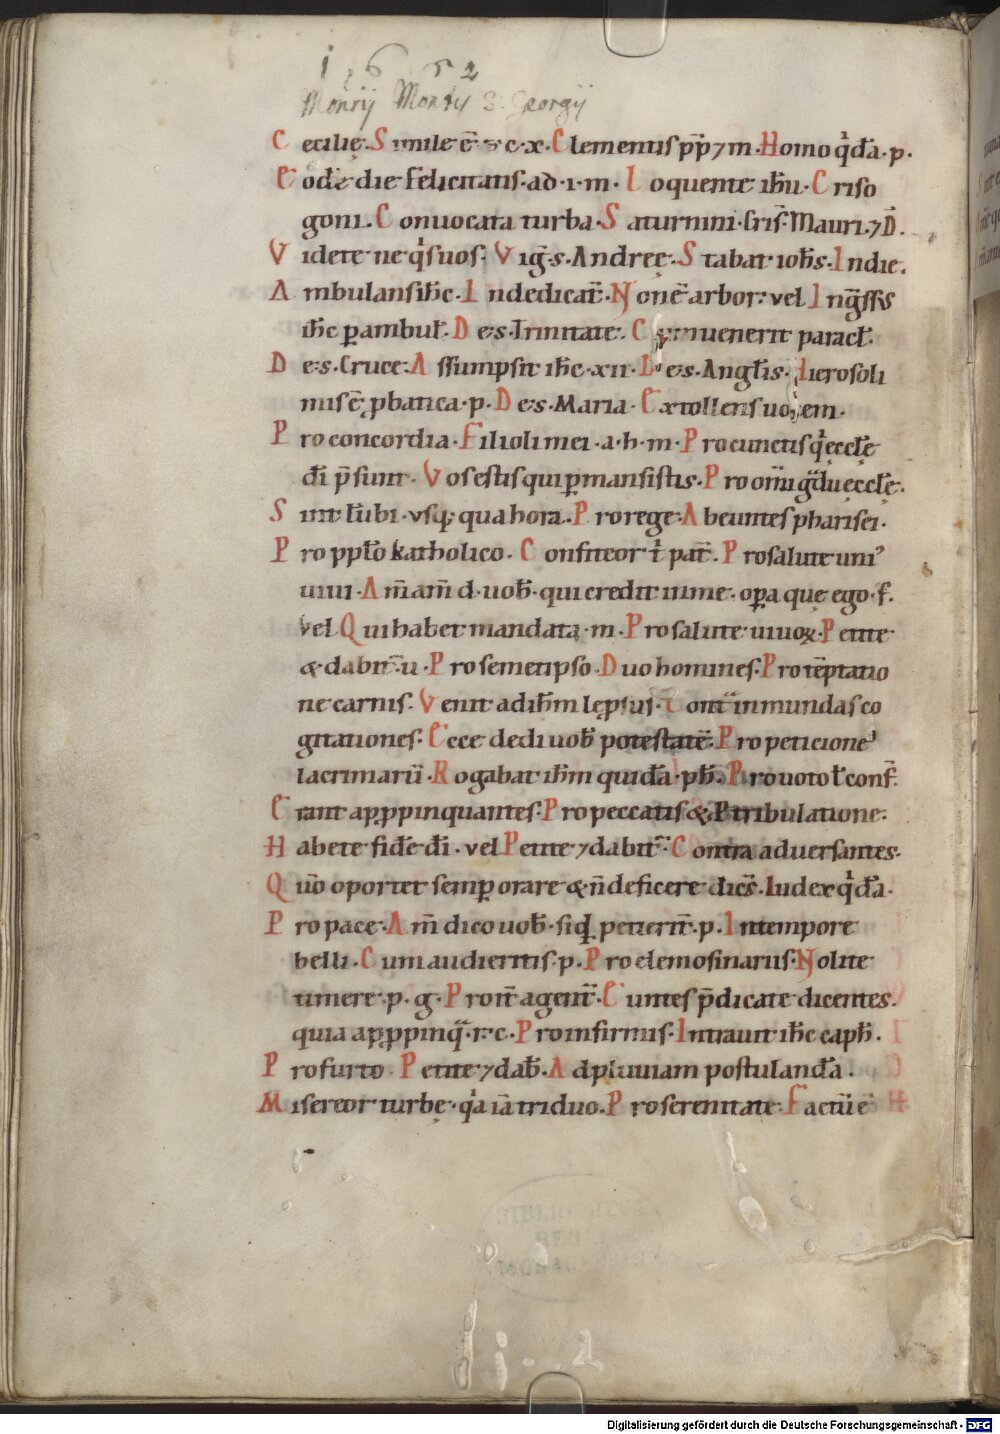 1652
Monrij Montis S. Georgij
Cecilię. Simile ē s c. x. Clementis pp̄ ⁊ m. Homo qͥdā. p.
Eodē die Felicitatis. ad. i. m. Loquente ihū. Criso
goni. Conuocata turba. Saturnini. Cris̄. Mauri. ⁊ D̄.
Videte ne qͥs uos. Vig̅. s. Andreę. Stabat ioh̄s. In die.
Ambulans ih̄c. In dedicat̄. Non ē arbor. vel Ing̅ssus
ih̄c p̱ambul̄. De. s. Trinitate. Cum uenerit paracl̄.
De. s. Cruce. Assumpsit ih̄c. xii. De. s. Angl̄is. Hierosoli
mis ē p̱batica. p. De. s. Maria. Extollens uocem.
Pro concordia. Filioli mei. a. h. m. Pro cunctis qͥ ęccl̄ę
dī p̄sunt. Vos estis qui p̱mansistis. Pro om̄i g̅du ęccl̄ę.
Sint lūbi. vsq; qua hora. Pro rege. Abeuntes pharisei.
Pro pplo katholico. Confiteor tͥ pat̄. Pro salute uniꝰ
uiui. Am̄ am̄ d. uob̄. qui credit in me. op̱a quę ego. f.
vel Qui habet mandata. m. Pro salute uiuoꝝ. Petite
& dabit̄. u. Pro semetipso. Duo homines. Pro tēptatio
ne carnis. Venit ad ih̄m lęp̱sus. Cont̄ inmundas co
gitationes. Ecce dedi uob̄ potestatē. Pro peticione
lacrimarū. Rogabat ih̄m quidā. ph̄. Pro uoto l̄ conf̄.
Erant ap̱p̱pinquantes. Pro peccatis & P tribulatione.
Habete fidē dī. vel Petite ⁊ dabit̄. Contra aduersantes.
Qūo oportet semp̱ orare & n̄ deficere dicēs. Iudex qͥdā.
Pro pace. Am̄ dico uob̄. siqͩ petierit̄. p. In tempore
belli. Cum audieritis. p. Pro elemosinariis. Nolite
timere. p. g. Pro it̄ agent̄. Euntes p̄dicate dicentes.
quia ap̱p̱pinq̄. r. c. Pro infirmis. Intrauit ih̄c caph̄.
Pro furto. Petite ⁊ dab̄. Ad pluuiam postulandā.
Misereor turbę. qͥa iā triduo. Pro serenitate. Factū ē
Digitalisierung gefördert durch die Deutsche Forschungsgemeinschaft - DFG